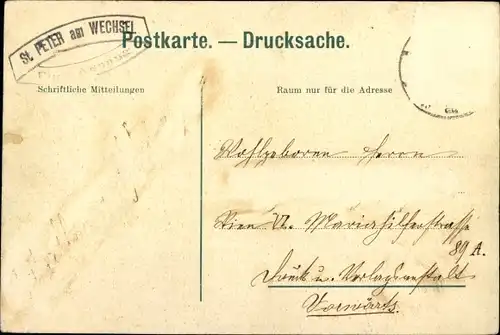 St. PETER am WECHSEL
Postkarte. — Drucksache.
Schriftliche Mitteilungen
Raum nur für die Adresse
Wohlgeboren Herrn
Wien VI. Mariahilferstrasse
89 A.
Druck u. Verlagsanstalt
Vorwärts.